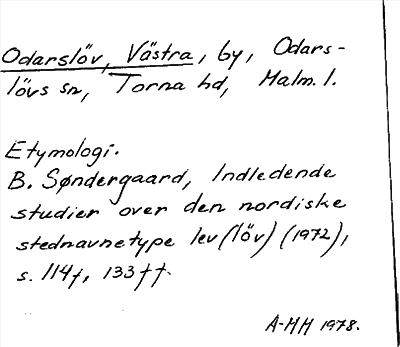 Odarslöv, Västra, by, Odars-
lövs sn, Torna hd, Malm. l.
Etymologi.
B. Søndergaard, Indledende
studier over den nordiske
stednavnetype lev(löv) (1972),
s. 114f, 133ff.
A-MH 1978.